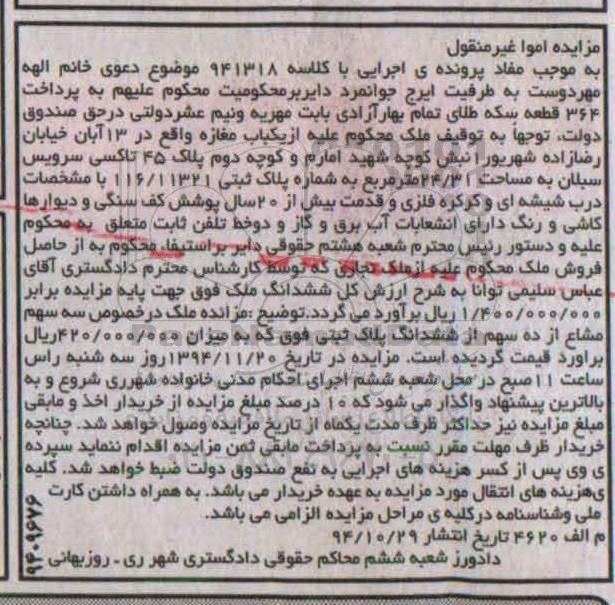 مزایده اموا غیرمنقول
به موجب مفاد پرونده ی اجرایی با کلاسه ۹۴۱۳۱۸ موضوع دعوی خانم الهه
مهردوست به طرفیت ایرج جوانمرد دایربرمحکومیت محکوم علیهم به پرداخت
۳۶۴ قطعه سکه طلای تمام بهارآزادی بابت مهریه ونیم عشردولتی درحق صندوق
دولت، توجهاً به توقیف ملک محکوم علیه ازیکباب مغازه واقع در ۱۳آبان خیابان
رضازاده شهریور۱نبش کوچه شهید امارم و کوچه دوم پلاک ۴۵ تاکسی سرویس
سبلان به مساحت ۲۴/۳۱مترمربع به شماره پلاک ثبتی ۱۱۶/۱۱۳۲۱ با مشخصات
درب شیشه ای و کرکره فلزی و قدمت بیش از ۲۰سال پوشش کف سنگی و دیوارها
کاشی و رنگ دارای انشعابات آب برق و گاز و دوخط تلفن ثابت متعلق به محکوم
علیه و دستور رئیس محترم شعبه هشتم حقوقی دایر براستیفاء محکوم به از حاصل
فروش ملک محکوم علیه ازملک تجاری که توسط کارشناس محترم دادگستری آقای
عباس سلیمی توانا به شرح ارزش کل ششدانگ ملک فوق جهت پایه مزایده برابر
۱/۴۰۰/۰۰۰/۰۰۰ ریال برآورد می گردد.توضیح :مزائده ملک درخصوص سه سهم
مشاع از ده سهم از ششدانگ پلاک ثبتی فوق که به میزان ۴۲۰/۰۰۰/۰۰۰ریال
براورد قیمت گردیده است. مزایده در تاریخ ۱۳۹۴/۱۱/۲۰روز سه شنبه راس
ساعت ۱۱صبح در محل شعبه ششم اجرای احکام مدنی خانواده شهرری شروع و به
بالاترین پیشنهاد واگذار می شود که ۱۰ درصد مبلغ مزایده از خریدار اخذ و مابقی
مبلغ مزایده نیز حداکثر ظرف مدت یکماه از تاریخ مزایده وصول خواهد شد. چنانچه
خریدار ظرف مهلت مقرر نسبت به پرداخت مابقی ثمن مزایده اقدام ننماید سپرده
ی وی پس از کسر هزینه های اجرایی به نفع صندوق دولت ضبط خواهد شد. کلیه
ی‌هزینه های انتقال مورد مزایده به عهده خریدار می باشد. به همراه داشتن کارت
ملی وشناسنامه درکلیه ی مراحل مزایده الزامی می باشد.
م الف ۴۶۲۰ تاریخ انتشار ۹۴/۱۰/۲۹
دادورز شعبه ششم محاکم حقوقی دادگستری شهر ری ـ روزبهانی
۹۴۰۹۶۷۶